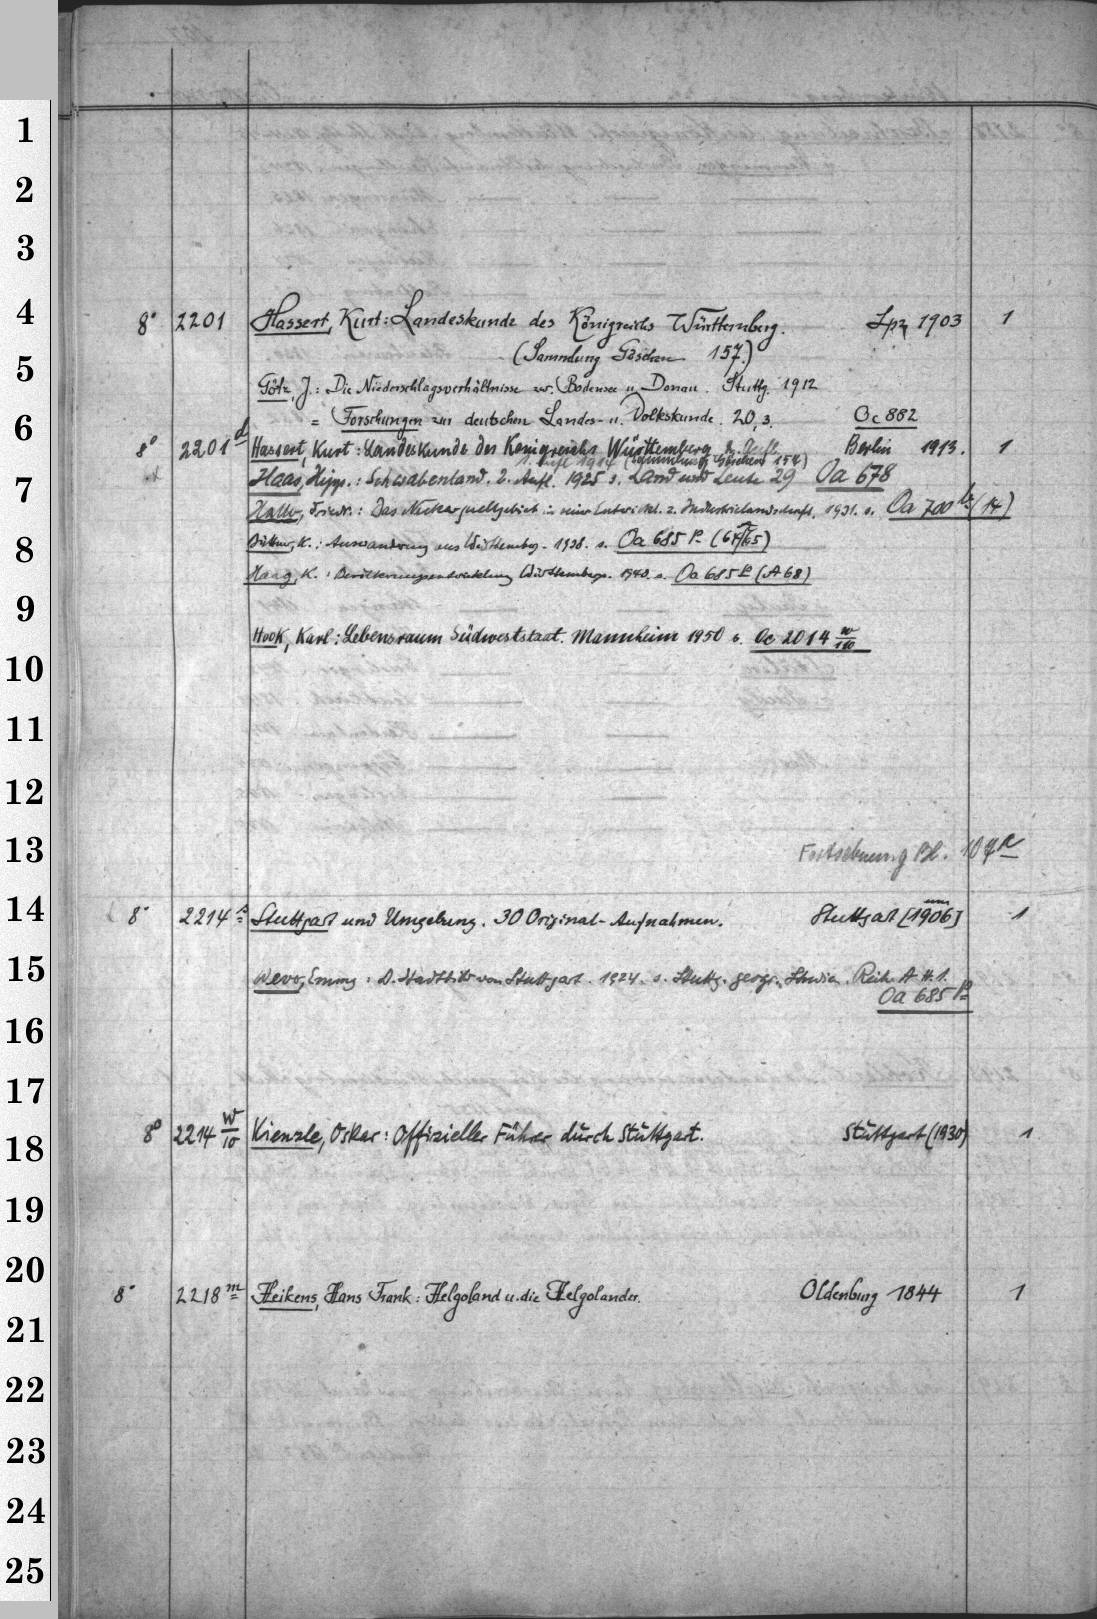 1
2
3
4
8° 2201 Hassert, Kurt: Landeskunde des Königreichs Württemberg. Lpz 1903 1
(Sammlung Göschen 157.)
5
Götz, J.: Die Niederschlagsverhältnisse zw. Bodensee u. Donau. Stuttg. 1912
= Forschungen zur deutschen Landes- u. Volkskunde. 20,3. Oc 882
6
8° 2201 d Hassert, Kurt: Landeskunde des Königreichs Württemberg 2. Aufl. Berlin 1913. 1
(Sammlung Göschen 157)
7
Haas, Hipp.: Schwabenland. 2. Aufl. 1925 s. Land und Leute 29 Oa 678
Friedr.: Das Neckarquellgebiet in seiner Entwickl. z. Industrielandschaft. 1931. s. Oa 700 (14)
8
K.: Auswanderung aus Württembg. 1938. s. Oa 685 P (64/65)
Haag, K.: Bevölkerungsentwicklung Württembergs. 1940. s. Oa 685 P (A 68)
9
Hook, Karl: Lebensraum Südweststaat. Mannheim 1950 s. Oc 2014 w/100
10
11
12
13
Fortsetzung Bl. 107 R
14
8° 2214 s Stuttgart und Umgebung. 30 Original-Aufnahmen. Stuttgart [um 1906] 1
15
: D. Stadtbild von Stuttgart. 1924. s. Stuttg. geogr. Studien. Reihe A H. 1.
Oa 685 P
16
17
18
8° 2214 w/10 Kienzle, Oskar: Offizieller Führer durch Stuttgart. Stuttgart (1930) 1
19
20
8° 2218 m Heikens, Hans Frank: Helgoland u. die Helgolander. Oldenburg 1844 1
21
22
23
24
25